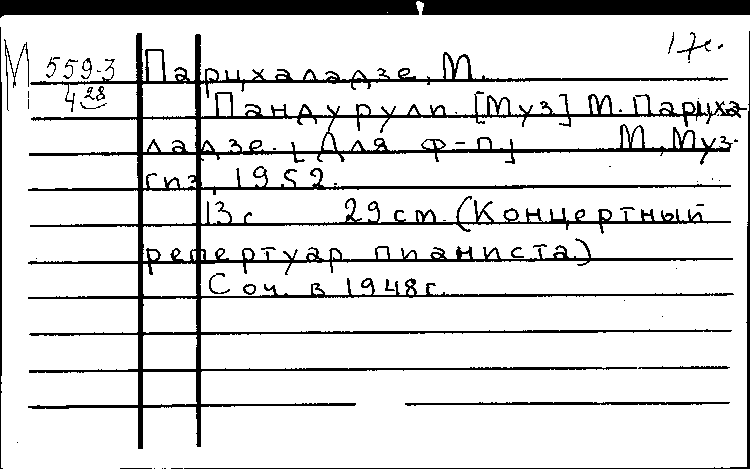 17с.
М 559-3 Парцхаладзе, М.
4 28 Пандурули. [Муз] М. Парцха-
ладзе. [Для ф-п.] М., Муз-
гиз, 1952.
13 с 29 cm. (Концертный
репертуар пианиста.)
Соч. в 1948 г.